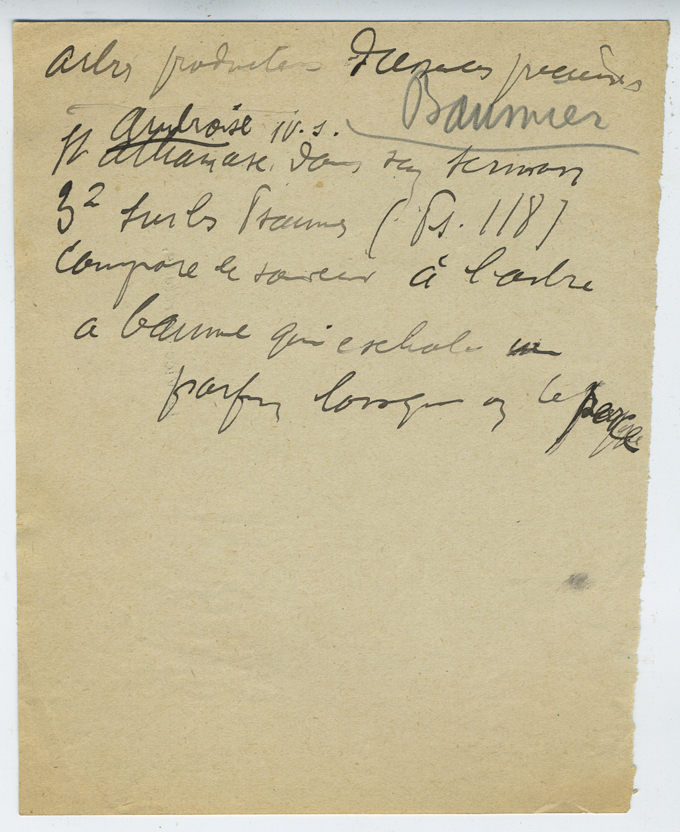 arbres producteurs d'essences précieuses
Baumier
ambroise IV. s.
St athanase dans son sermon
3² sur les Psaumes (Ps. 118)
compare le sauveur à l'arbre
a baume qui exhale un
parfum lorsqu on le perce